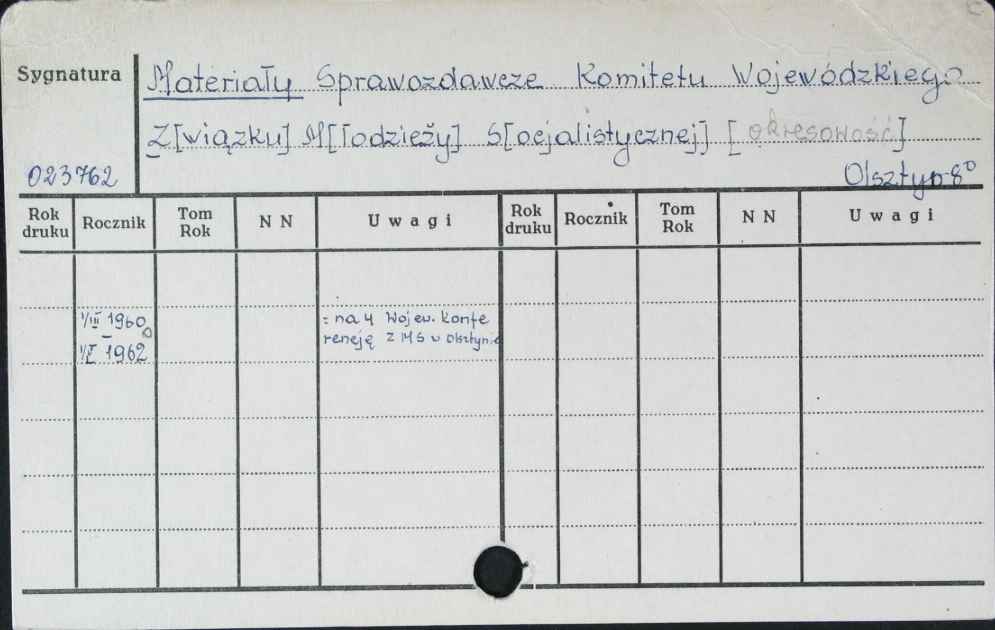 Sygnatura
Materiały Sprawozdawcze Komitetu Wojewódzkiego
Z[wiązku] M[łodzieży] S[ocjalistycznej] [okresowość]
023762
Olsztyn 8°
Rok druku Rocznik Tom Rok N N Uwagi Rok druku Rocznik Tom Rok N N Uwagi
1/III 1960 : na 4 Wojew. Konfe
– rencję ZMS w Olsztynie
1/I 1962